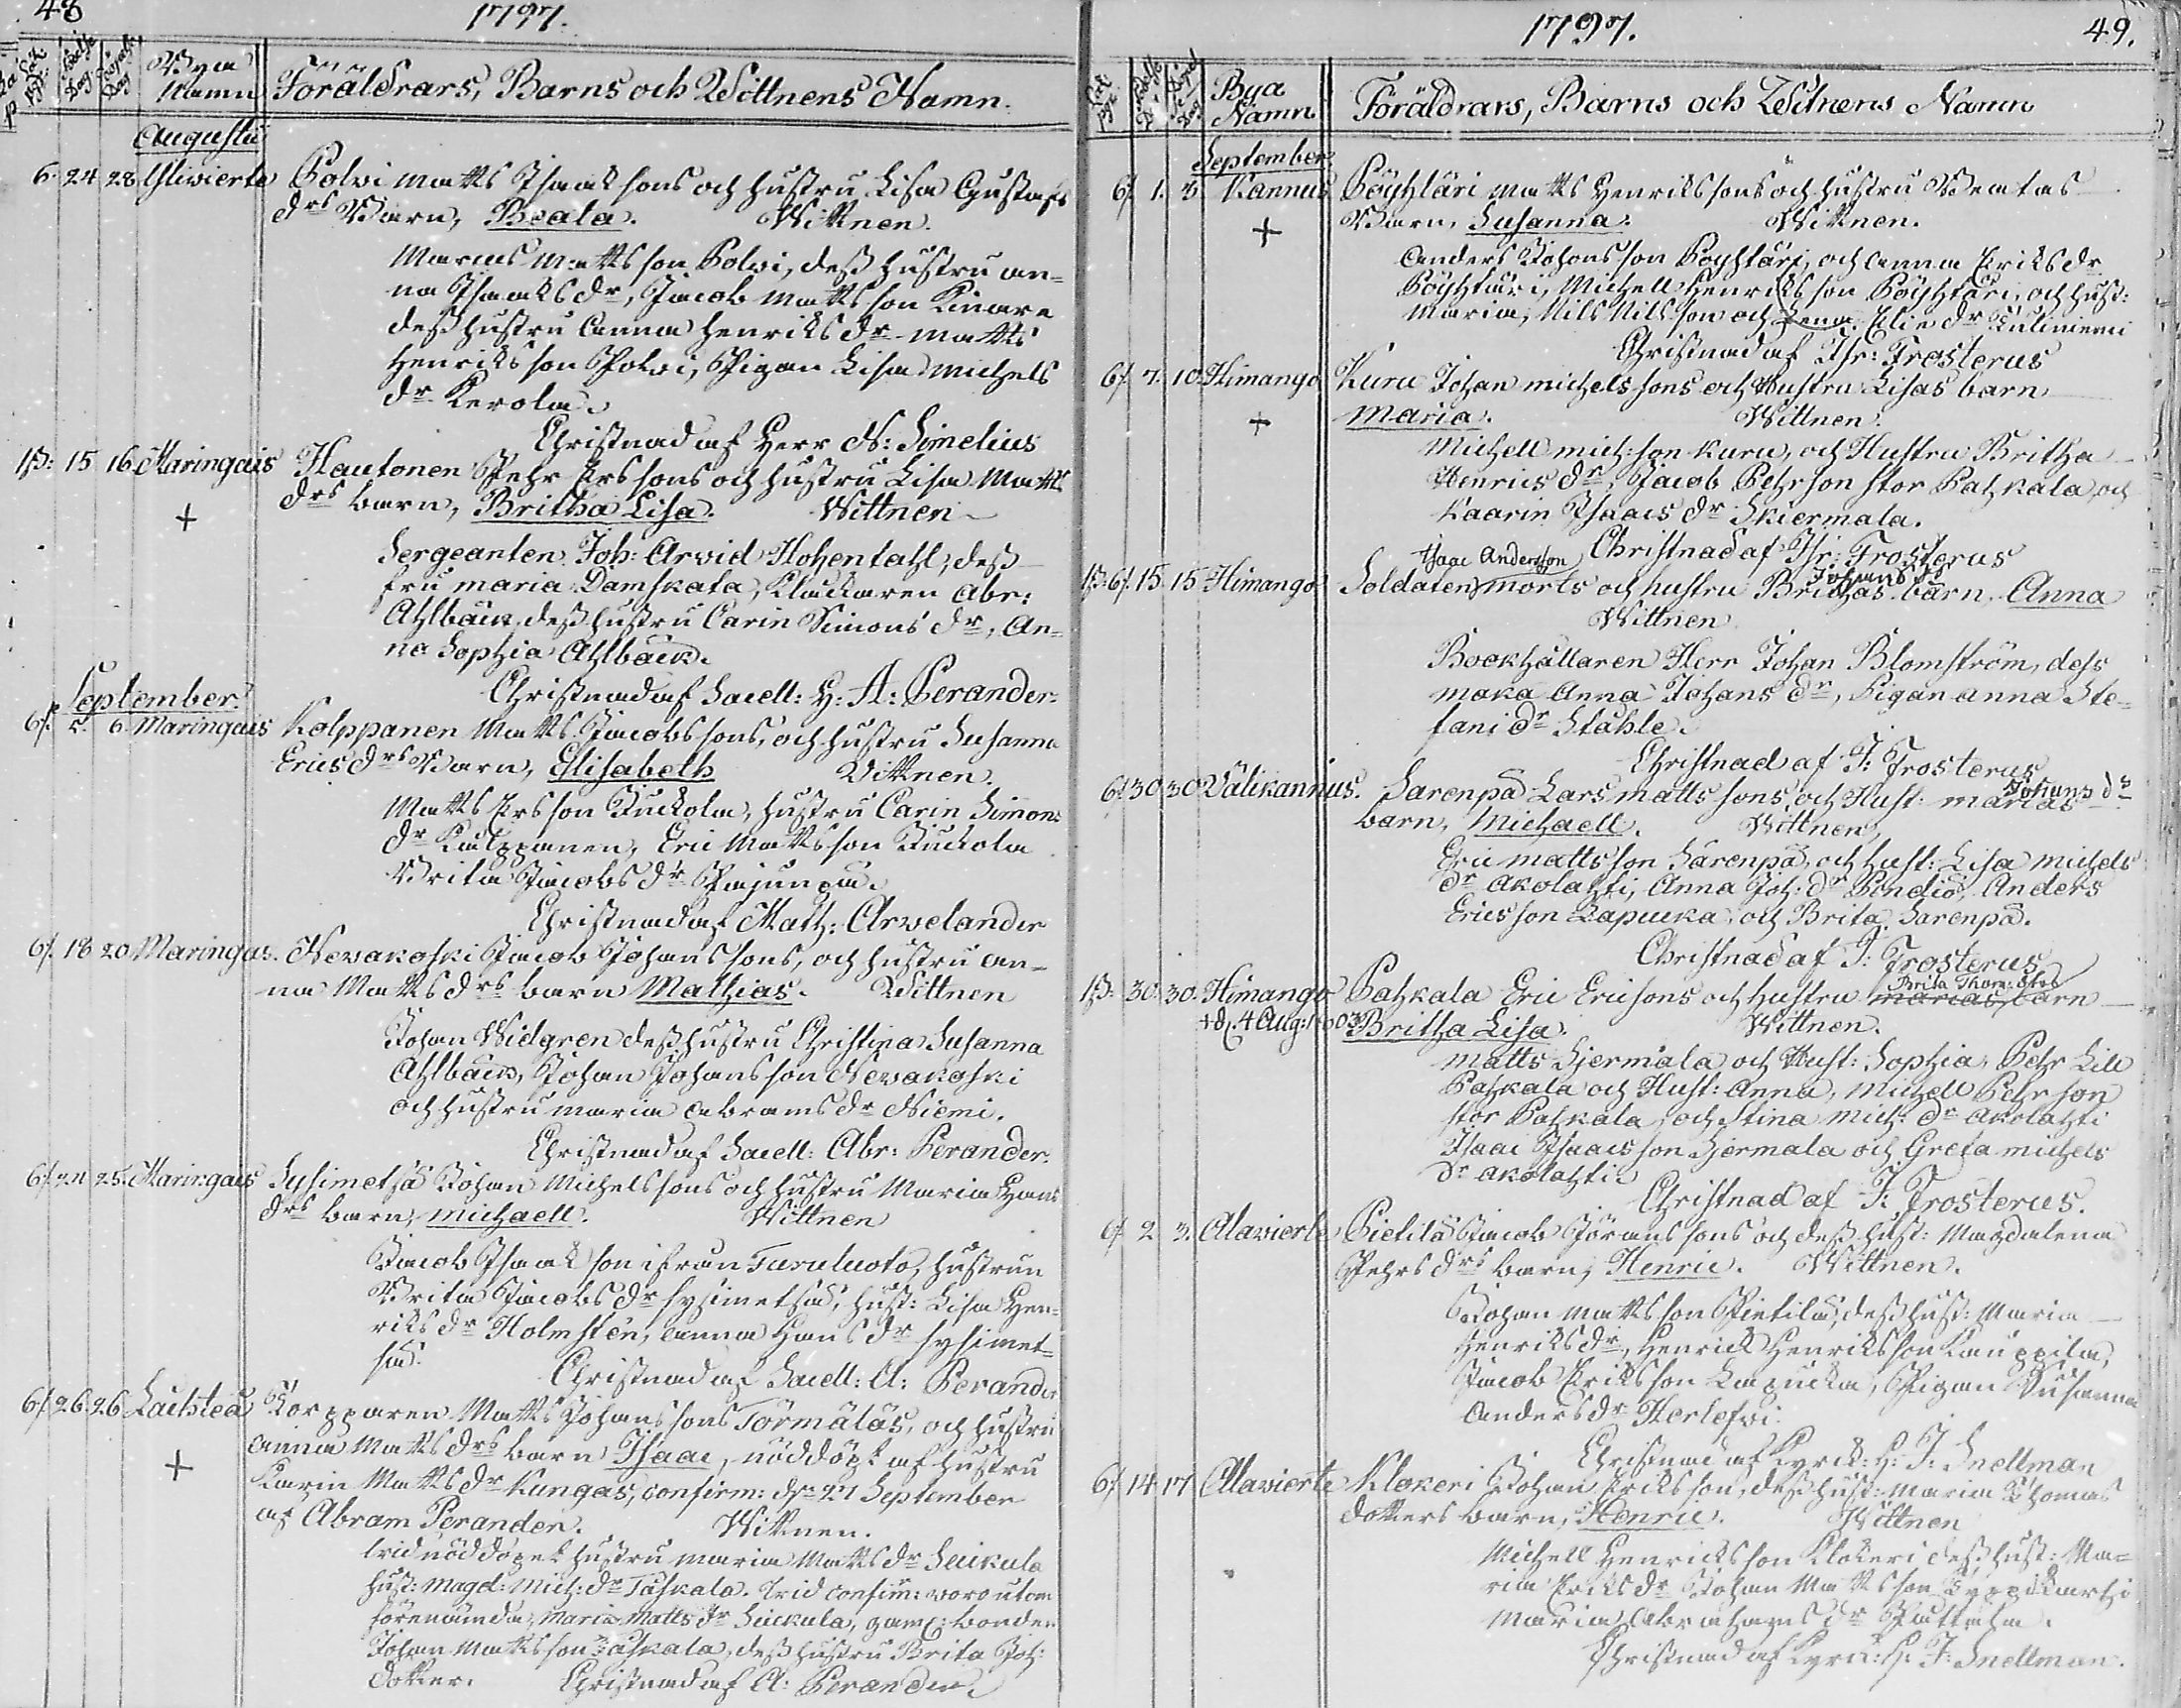 48
1797.
Bya
Namn
Föräldrars, Barns och Wittnens Namn.
Augustii
6. 24 28 Ylivierte Polvi Matts Isaaksons och hustru Lisa Gustafs
drs Barn, Beata. Wittnen.
Marcus Mattsson Polvi, dess hustru An-
na Isaaksdr, Jacob Mattsson Kinare
dess hustru Anna Henriksdr Matts
Henriksson Polvi, Pigan Lisa Michels
dr Kerola.
Christnad af Herr N: Simelius
15 16 Maringais Hautonen Pehr Erssons och hustru Lisa Matts
drs barn, Britha Lisa. Wittnen
+
Sergeanten Joh: Arvid Hohentahl, dess
fru Maria Damskata, Klockaren Abr:
Ahlbäck, dess hustru Carin Simonsdr, An-
na Sophia Ahlbäck.
Christnad af Sacell: H: A: Perander.
September.
6. 5. 6. Maringais Kolppanen Matts Jacobssons, och hustru Susanna
Ericsdrs Barn, Elisabeth Wittnen.
Matts Ersson Juckola, hustru Carin Simons
dr Kalppanen, Eric Mattsson Juckola
Brita Jacobsdr Pajunpu.
Christnad af Math: Arvelander
6. 18 20 Maringas. Nevakoski Jacob Johanssons, och hustru An-
na Mattsdrs barn Mathias. Wittnen
Johan Widgren dess hustru Christina Susanna
Ahlbäck, Johan Johansson Nevakoski
och hustru Maria Abramsdr Niemi.
Christnad af Sacell: Abr: Perander.
6. 24 25. Maringais Sysimetsä Johan Michelssons och hustru Maria Hans
drs barn, Michaell. Wittnen
Jacob Isaakson ifrån Turuluoto, hustrun
Brita Jacobsdr Sysimetsä, hust: Lisa Hen-
riksdr Holmstén, Anna Hansdr Sysimet-
sä. Christnad af Sacell: A: Perander
6. 26 26 Laihstea Korpparen Matts Johanssons Törmäläs, och hustru
Anna Mattsdrs barn Isaac, nöddöpt af hustru
+
Karin Mattsdr Kungas, confirm: d: 27 September
af Abram Perander. Wittnen.
Wid nöddopet hustru Maria Mattsdr Seikula
hust: Magd: Mich: dr Taskala. Wid confirm: woro utom
förenämnda, Maria Matts dr Seikula, gaml: bonden
Johan Mattsson Taskala, dess hustru Brita Joh:
dotter. Christnad af A: Perander.
1797. 49.
Bya
Namn
Föräldrars, Barns och Witnens Namn
September.
6. 1. 3 Kannus Pöyhtäri Matts Henrikssons och hustru Beatas
Barn, Susanna. Wittnen.
+
Anders Johansson Pöyhtäri, och Anna Eriksdr
Pöyhtäri, Michell Henriksson Pöyhtäri, och hust:
Maria, Nils Nilsson och Lena Eliedr Kuliniemi
Christnad af Thr: Frosterus
6. 7. 10. Himango Kuru Johan Michelssons och Hustru Lisas barn
Maria. Wittnen.
+
Michell Mich:son Kuru, och Hustru Britha
Henricsdr, Jacob Pehrson stor Pahkala, och
Kaarin Isaacsdr Skiermala.
Christnad af Thr: Frosterus
Isaac Andersson
6. 15 15 Himango Soldaten Morts och hustru Brithas Johansdr barn, Anna
Wittnen
Bookhållaren Herr Johan Blomström, dess
maka Anna Johansdr, Pigan Anna Ste-
fanidr Ståhle.
Christnad af J: Frosterus
Johansdr
6. 30 30 Välikannus. Sarenpä Lars Matts sons, och Hust: Marias
barn, Michaell. Wittnen
Eric Mattsson Sarenpä, och hust: Lisa Michels
dr Akolahti, Anna Joh: dr Pendiö, Anders
Ericsson Lapucka, och Brita Sarenpä.
Christnad af J: Frosterus
Brita Thom: drs
30. 30. Himango Pahkala Eric Ericsons och Hustru Marias barn
+ d. 4 Aug: 1803 Britha Lisa. Wittnen.
Matts Sjermala och Hust: Sophia, Pehr Lill
Pahkala och Hust: Anna, Michell Pehrson
stor Pahkala, och Stina Mich: dr Akolahti
Isaac Isaacsson Sjermala och Greta Michels
dr Akolahti
Christnad af J: Frosterus.
6. 2 3. Alavierte Pietilä Jacob Jöranssons och dess hust: Magdalena
Pehrsdrs barn, Henric. Wittnen.
Johan Mattsson Pietilä, dess hust: Maria
Henriksdr, Henrick Henriksson Kauppila,
Jacob Eriksson Lapucka, Pigan Susanna
Andersdr Herlefvi.
Christnad af Hr: J: Snellman
6. 14 17 Alavierte Klokeri Johan Eriksson, dess hust: Maria Thomas
dotters barn, Henric. Wittnen
Michell Henricksson Klokeri dess hust: Ma-
ria Eriksdr Johan Mattsson
Maria Abrahamsdr
Christnad af J: Snellman.